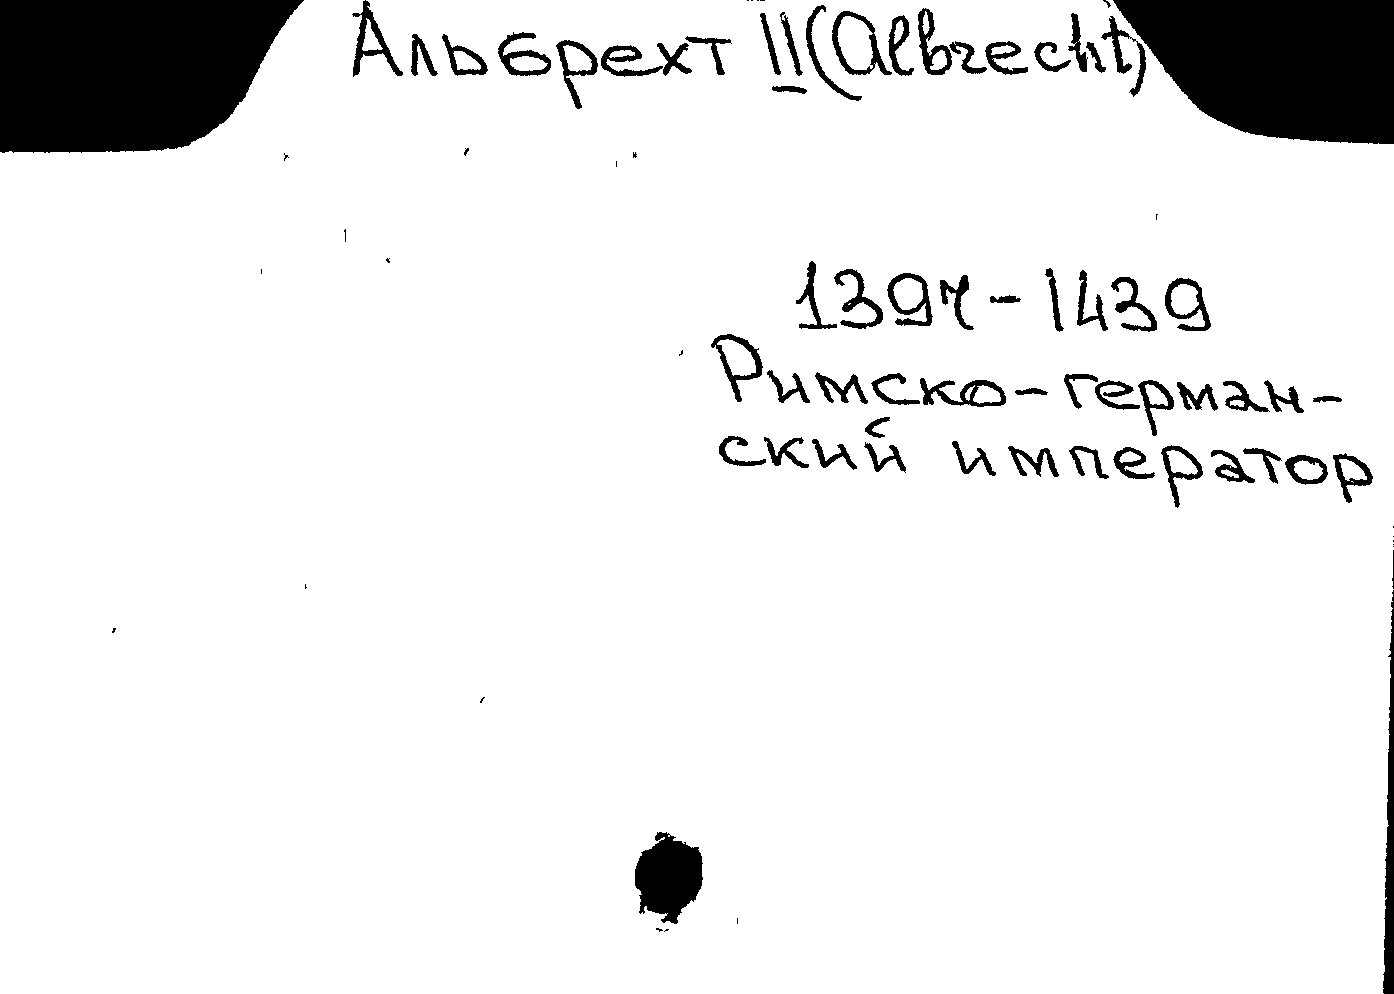 Альбрехт II (Albrecht)
1397-1439
Римско-герман-
ский император